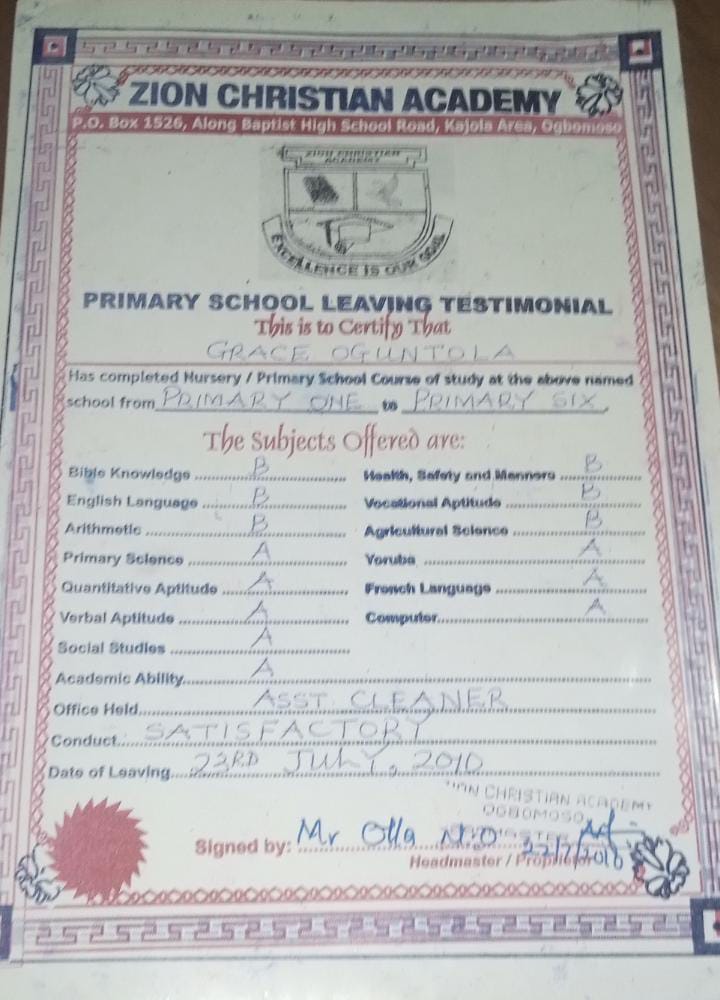 ZION CHRISTIAN ACADEMY
P.O. Box 1526, Along Baptist High School Road, Kajola Area, Ogbomoso
ZION CHRISTIAN
ACADEMY
EXCELLENCE IS OUR GOAL
PRIMARY SCHOOL LEAVING TESTIMONIAL
This is to Certify That
GRACE OGUNTOLA
Has completed Nursery / Primary School Course of study at the above named
school from PRIMARY ONE to PRIMARY SIX
The Subjects Offered are:
Bible Knowledge B Health, Safety and Manners B
English Language B Vocational Aptitude B
Arithmetic B Agricultural Science B
Primary Science A Yoruba A
Quantitative Aptitude A French Language A
Verbal Aptitude A Computer A
Social Studies A
Academic Ability A
Office Held ASST. CLEANER
Conduct SATISFACTORY
Date of Leaving 23RD JULY, 2010
CHRISTIAN ACADEMY
OGBOMOSO
Signed by: Mr Olla
Headmaster / Proprietor